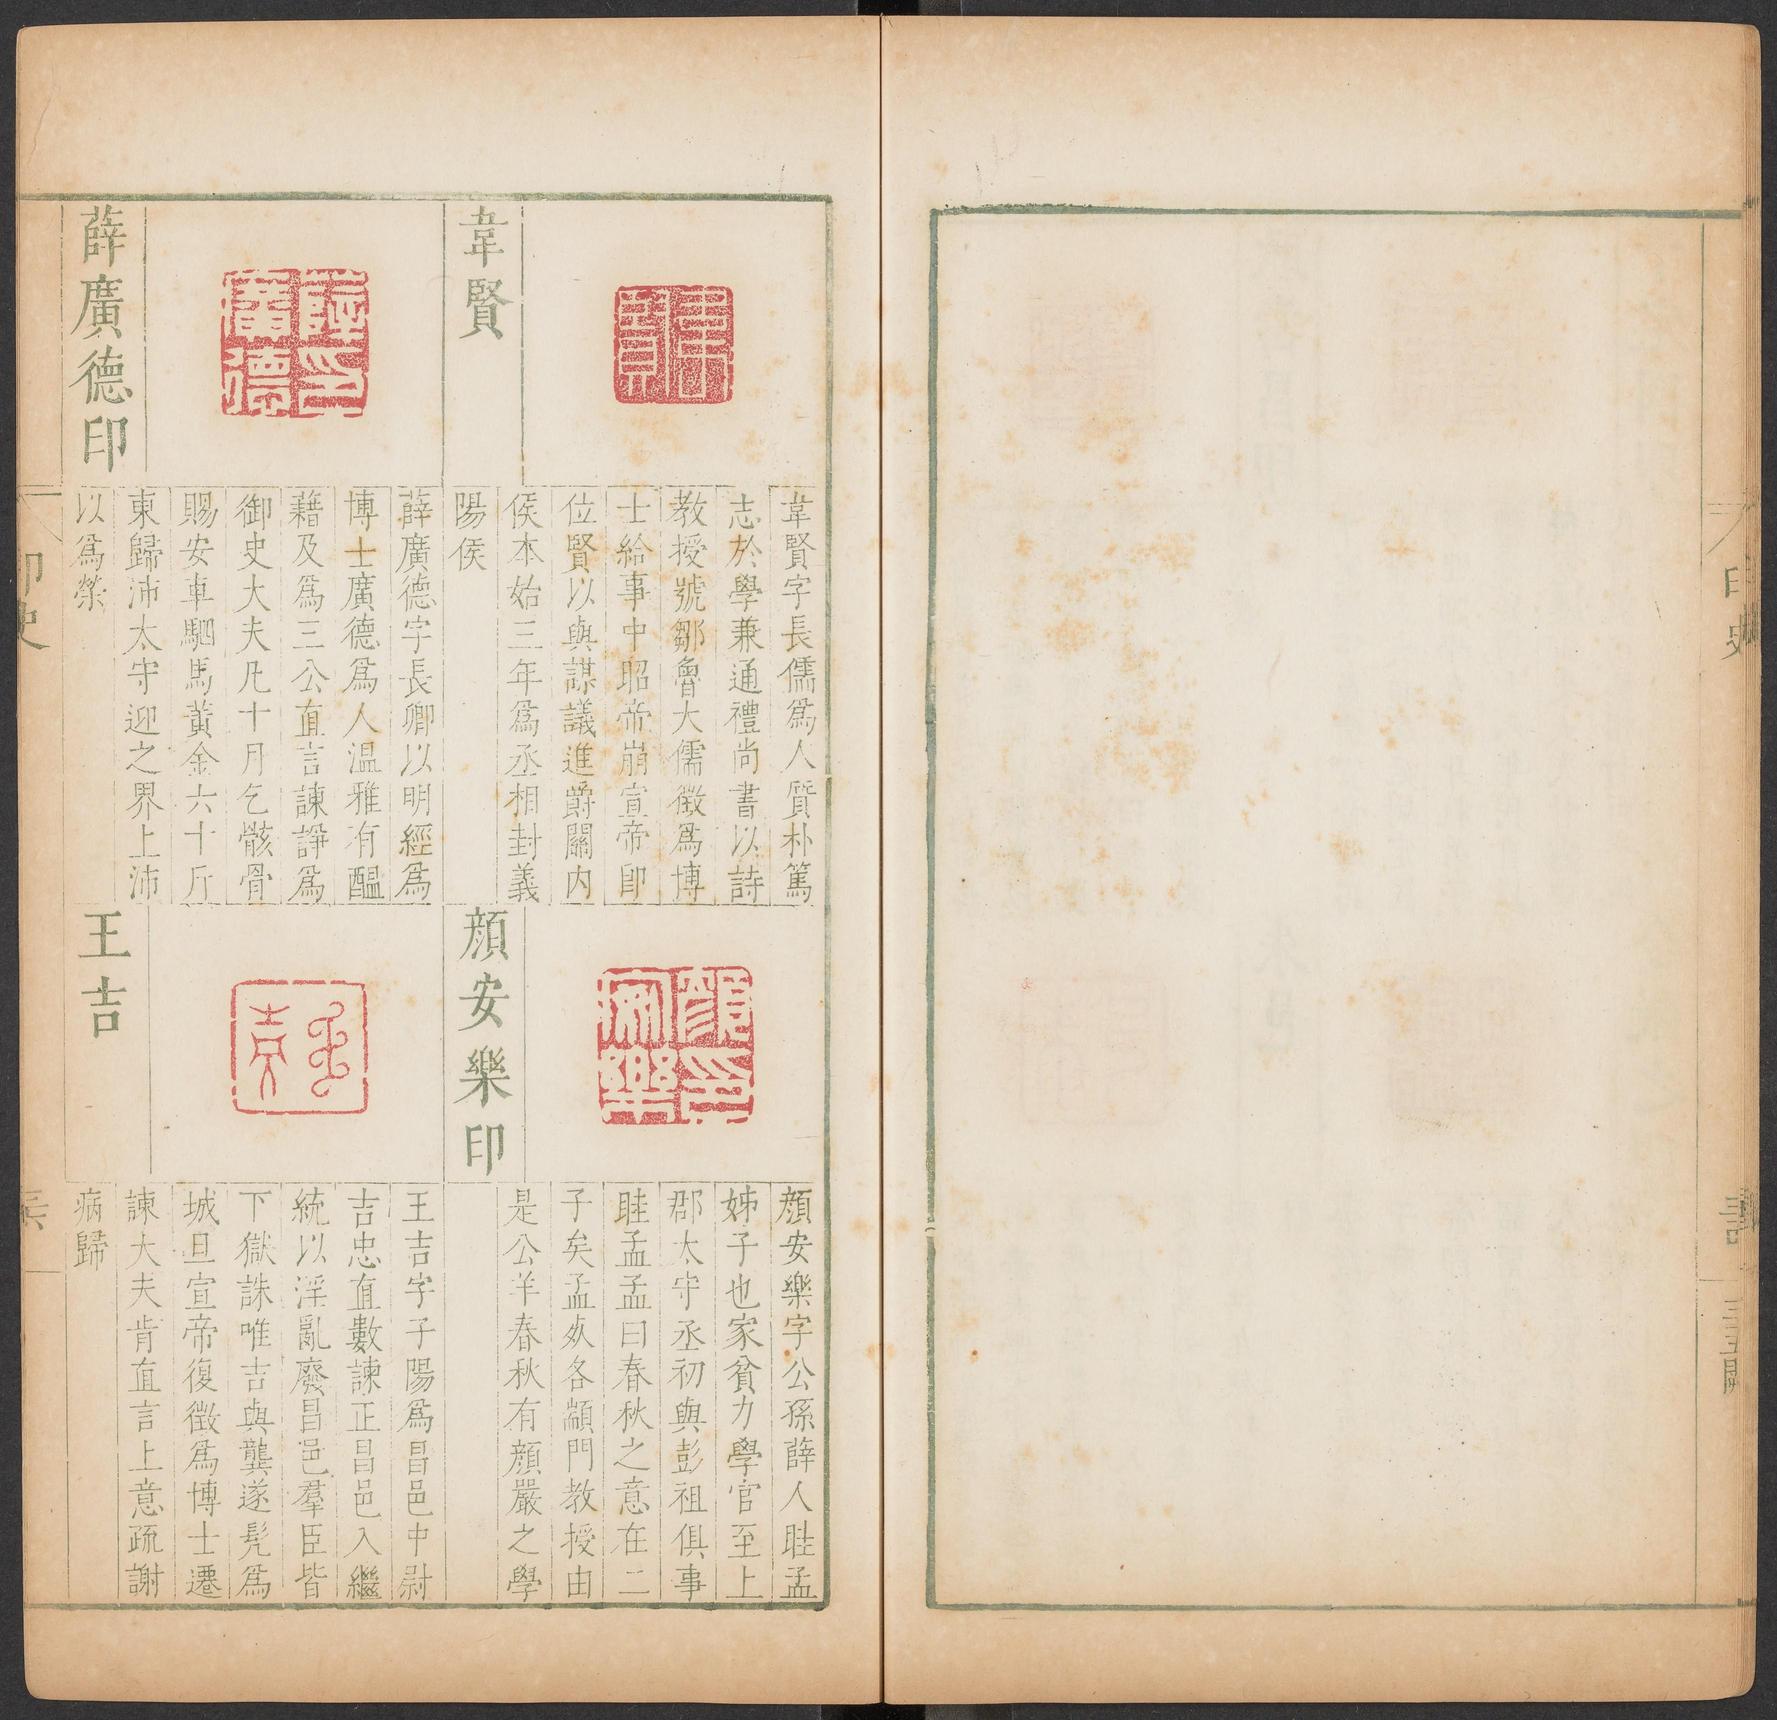 印史
韋賢
韋賢字長儒為人質朴篤
志於學兼通禮尚書以詩
教授號鄒魯大儒徵為博
士給事中昭帝崩宣帝即
位賢以與謀議進爵關內
侯本始三年為丞相封義
陽侯
薛廣德印
薛廣德字長卿以明經為
博士廣德為人温雅有醞
藉及為三公直言諫諍為
御史大夫凡十月乞骸骨
賜安車駟馬黃金六十斤
東歸沛太守迎之界上沛
以為榮
顔安樂印
顔安樂字公孫薛人眭孟
姊子也家貧力學官至上
郡太守丞初與彭祖俱事
眭孟孟曰春秋之意在二
子矣孟死各顓門教授由
是公羊春秋有顔嚴之學
王吉
王吉字子陽為昌邑中尉
吉忠直數諫正昌邑入繼
統以淫亂廢昌邑羣臣皆
下獄誅唯吉與龔遂髡為
城旦宣帝復徵為博士遷
諫大夫肯直言上意疏謝
病歸
印史